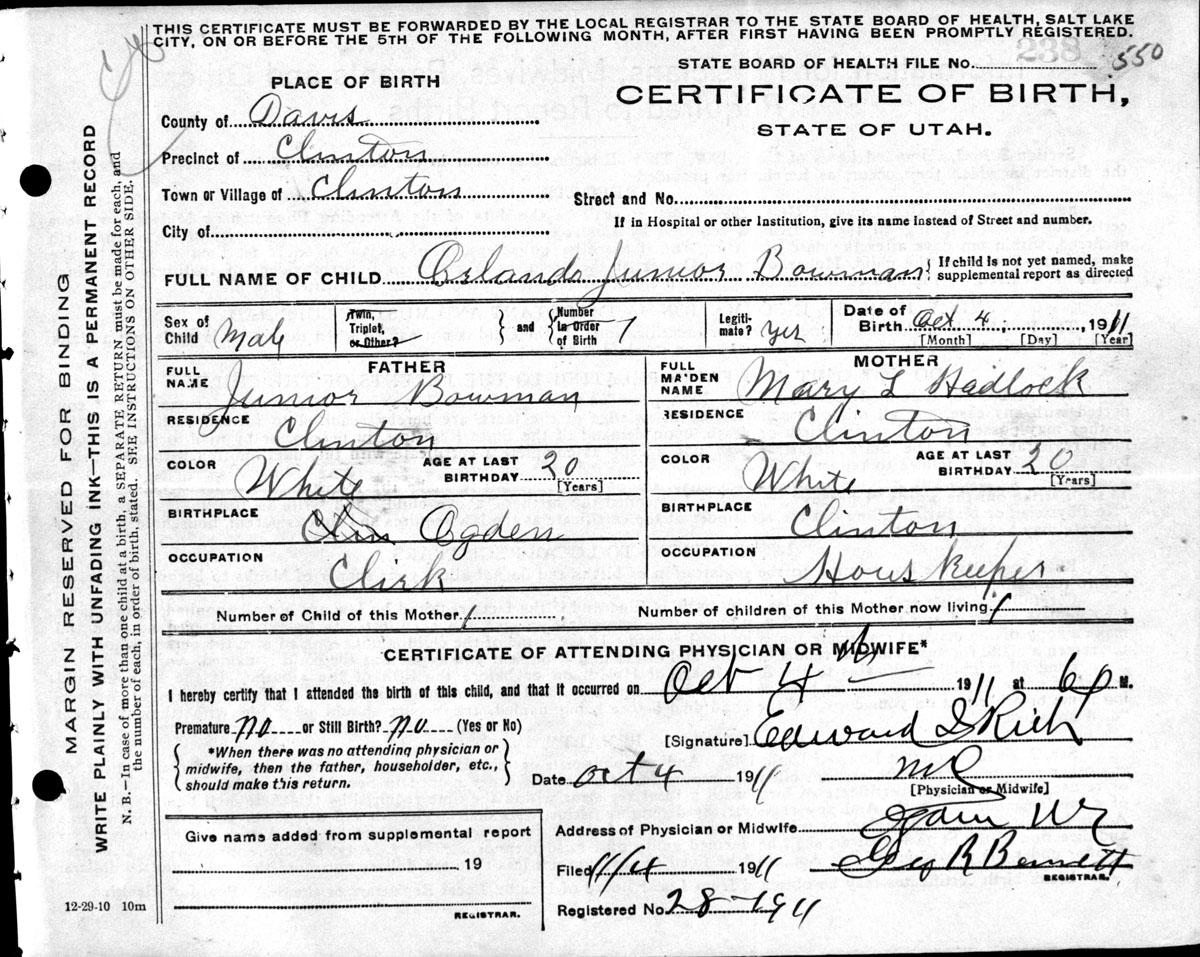 THIS CERTIFICATE MUST BE FORWARDED BY THE LOCAL REGISTRAR TO THE STATE BOARD OF HEALTH, SALT LAKE
CITY, ON OR BEFORE THE 5TH OF THE FOLLOWING MONTH, AFTER FIRST HAVING BEEN PROMPTLY REGISTERED.
238
STATE BOARD OF HEALTH FILE No. 550
CERTIFICATE OF BIRTH,
STATE OF UTAH.
PLACE OF BIRTH
County of Davis
Precinct of Clinton
Town or Village of Clinton
City of
Street and No.
If in Hospital or other Institution, give its name instead of Street and number.
FULL NAME OF CHILD Orlando Junior Bowman { If child is not yet named, make
supplemental report as directed
Sex of Child Male
Twin, Triplet, or Other?
and
Number in Order of Birth 1
Legiti-mate? yes
Date of Birth Oct 4, 1911
[Month] [Day] [Year]
FATHER
FULL NAME Junior Bowman
RESIDENCE Clinton
COLOR White
AGE AT LAST BIRTHDAY 20
[Years]
BIRTHPLACE Clin Ogden
OCCUPATION Clirk
MOTHER
FULL MAIDEN NAME Mary L Hadlock
RESIDENCE Clinton
COLOR White
AGE AT LAST BIRTHDAY 20
[Years]
BIRTHPLACE Clinton
OCCUPATION Hous Keeper
Number of Child of this Mother 1
Number of children of this Mother now living 1
CERTIFICATE OF ATTENDING PHYSICIAN OR MIDWIFE*
I hereby certify that I attended the birth of this child, and that it occurred on Oct 4 th 1911 at 6 p M.
Premature? no or Still Birth? no (Yes or No)
{ *When there was no attending physician or
midwife, then the father, householder, etc.,
should make this return. }
[Signature] Edward I Rich
Date Oct 4 1911
[Physician or Midwife]
Give name added from supplemental report
19
REGISTRAR.
Address of Physician or Midwife
Filed 11/4 1911 Geo R Bennett
REGISTRAR.
Registered No. 28-1911
12-29-10 10m
MARGIN RESERVED FOR BINDING
WRITE PLAINLY WITH UNFADING INK—THIS IS A PERMANENT RECORD
N. B.—In case of more than one child at a birth, a SEPARATE RETURN must be made for each, and
the number of each, in order of birth, stated. SEE INSTRUCTIONS ON OTHER SIDE.